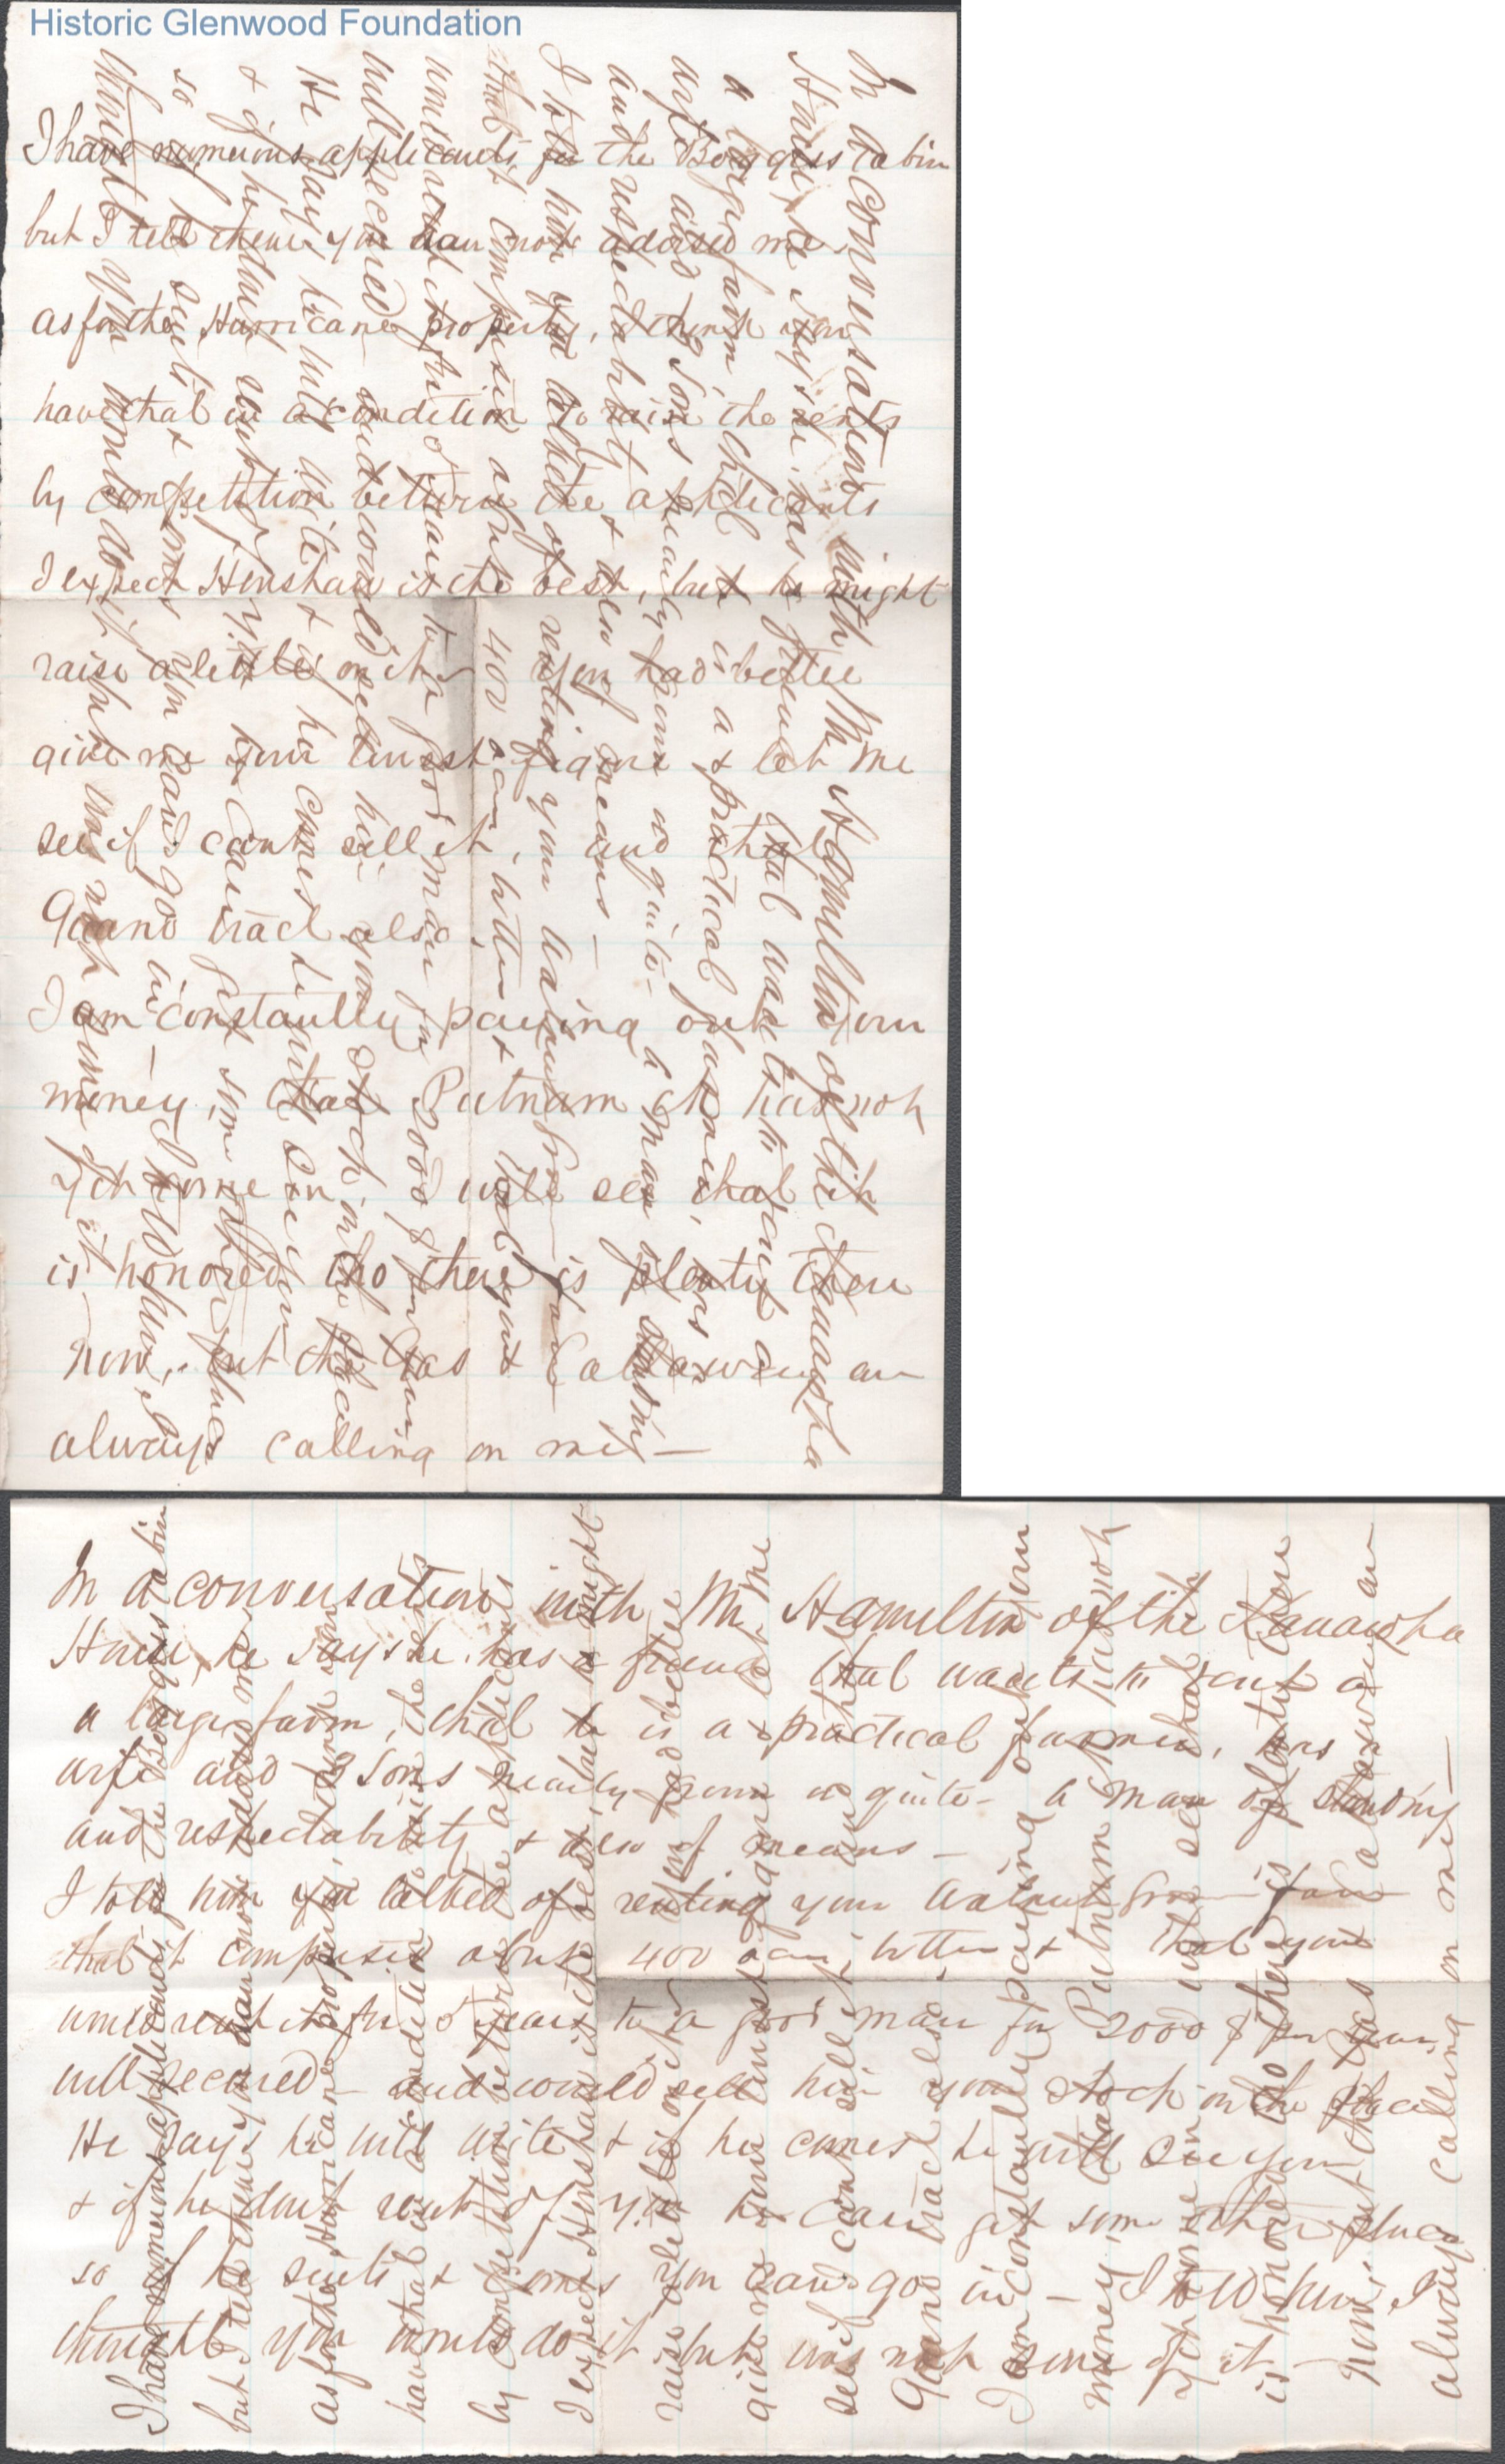 Historic Glenwood Foundation
I have numerous applicants for the Boggess Cabin
but I tell them you have not advised me.
as for the Hurricane property, I think you
have that in a condition to raise the rents
by competition between the applicants
I expect Henshaw is the best, but he might
raise a little on it. You had better
give me your lowest figure & let me
see if I cant sell it, and that
Guano tract also.
I am constantly paying out your
money, that Putnam ck has not
yet come in will see that
is honored tho there is plenty there
now, but the Gas & are
always calling on me —
In a conversation with Mr Hamilton of the Kanawha
House, he says he has a friend that wants to rent a
a large farm, that he is a practical farmer, has a
wife and 3 Sons nearly grown is quite a man of standing
and respectability & also of means —
I told him you talked of renting your Walnut Grove farm
that it comprises about 400 acres bottom & that you
would rent it for 5 years to a good man for 2000 $ per year,
well secured — and would sell him your stock on the place
He says he will write & if he comes he will see you
& if he dont rent of you he can get some other place
so if he suits & comes you can go in — I told him, I
thought you would do it but was not sure of it —